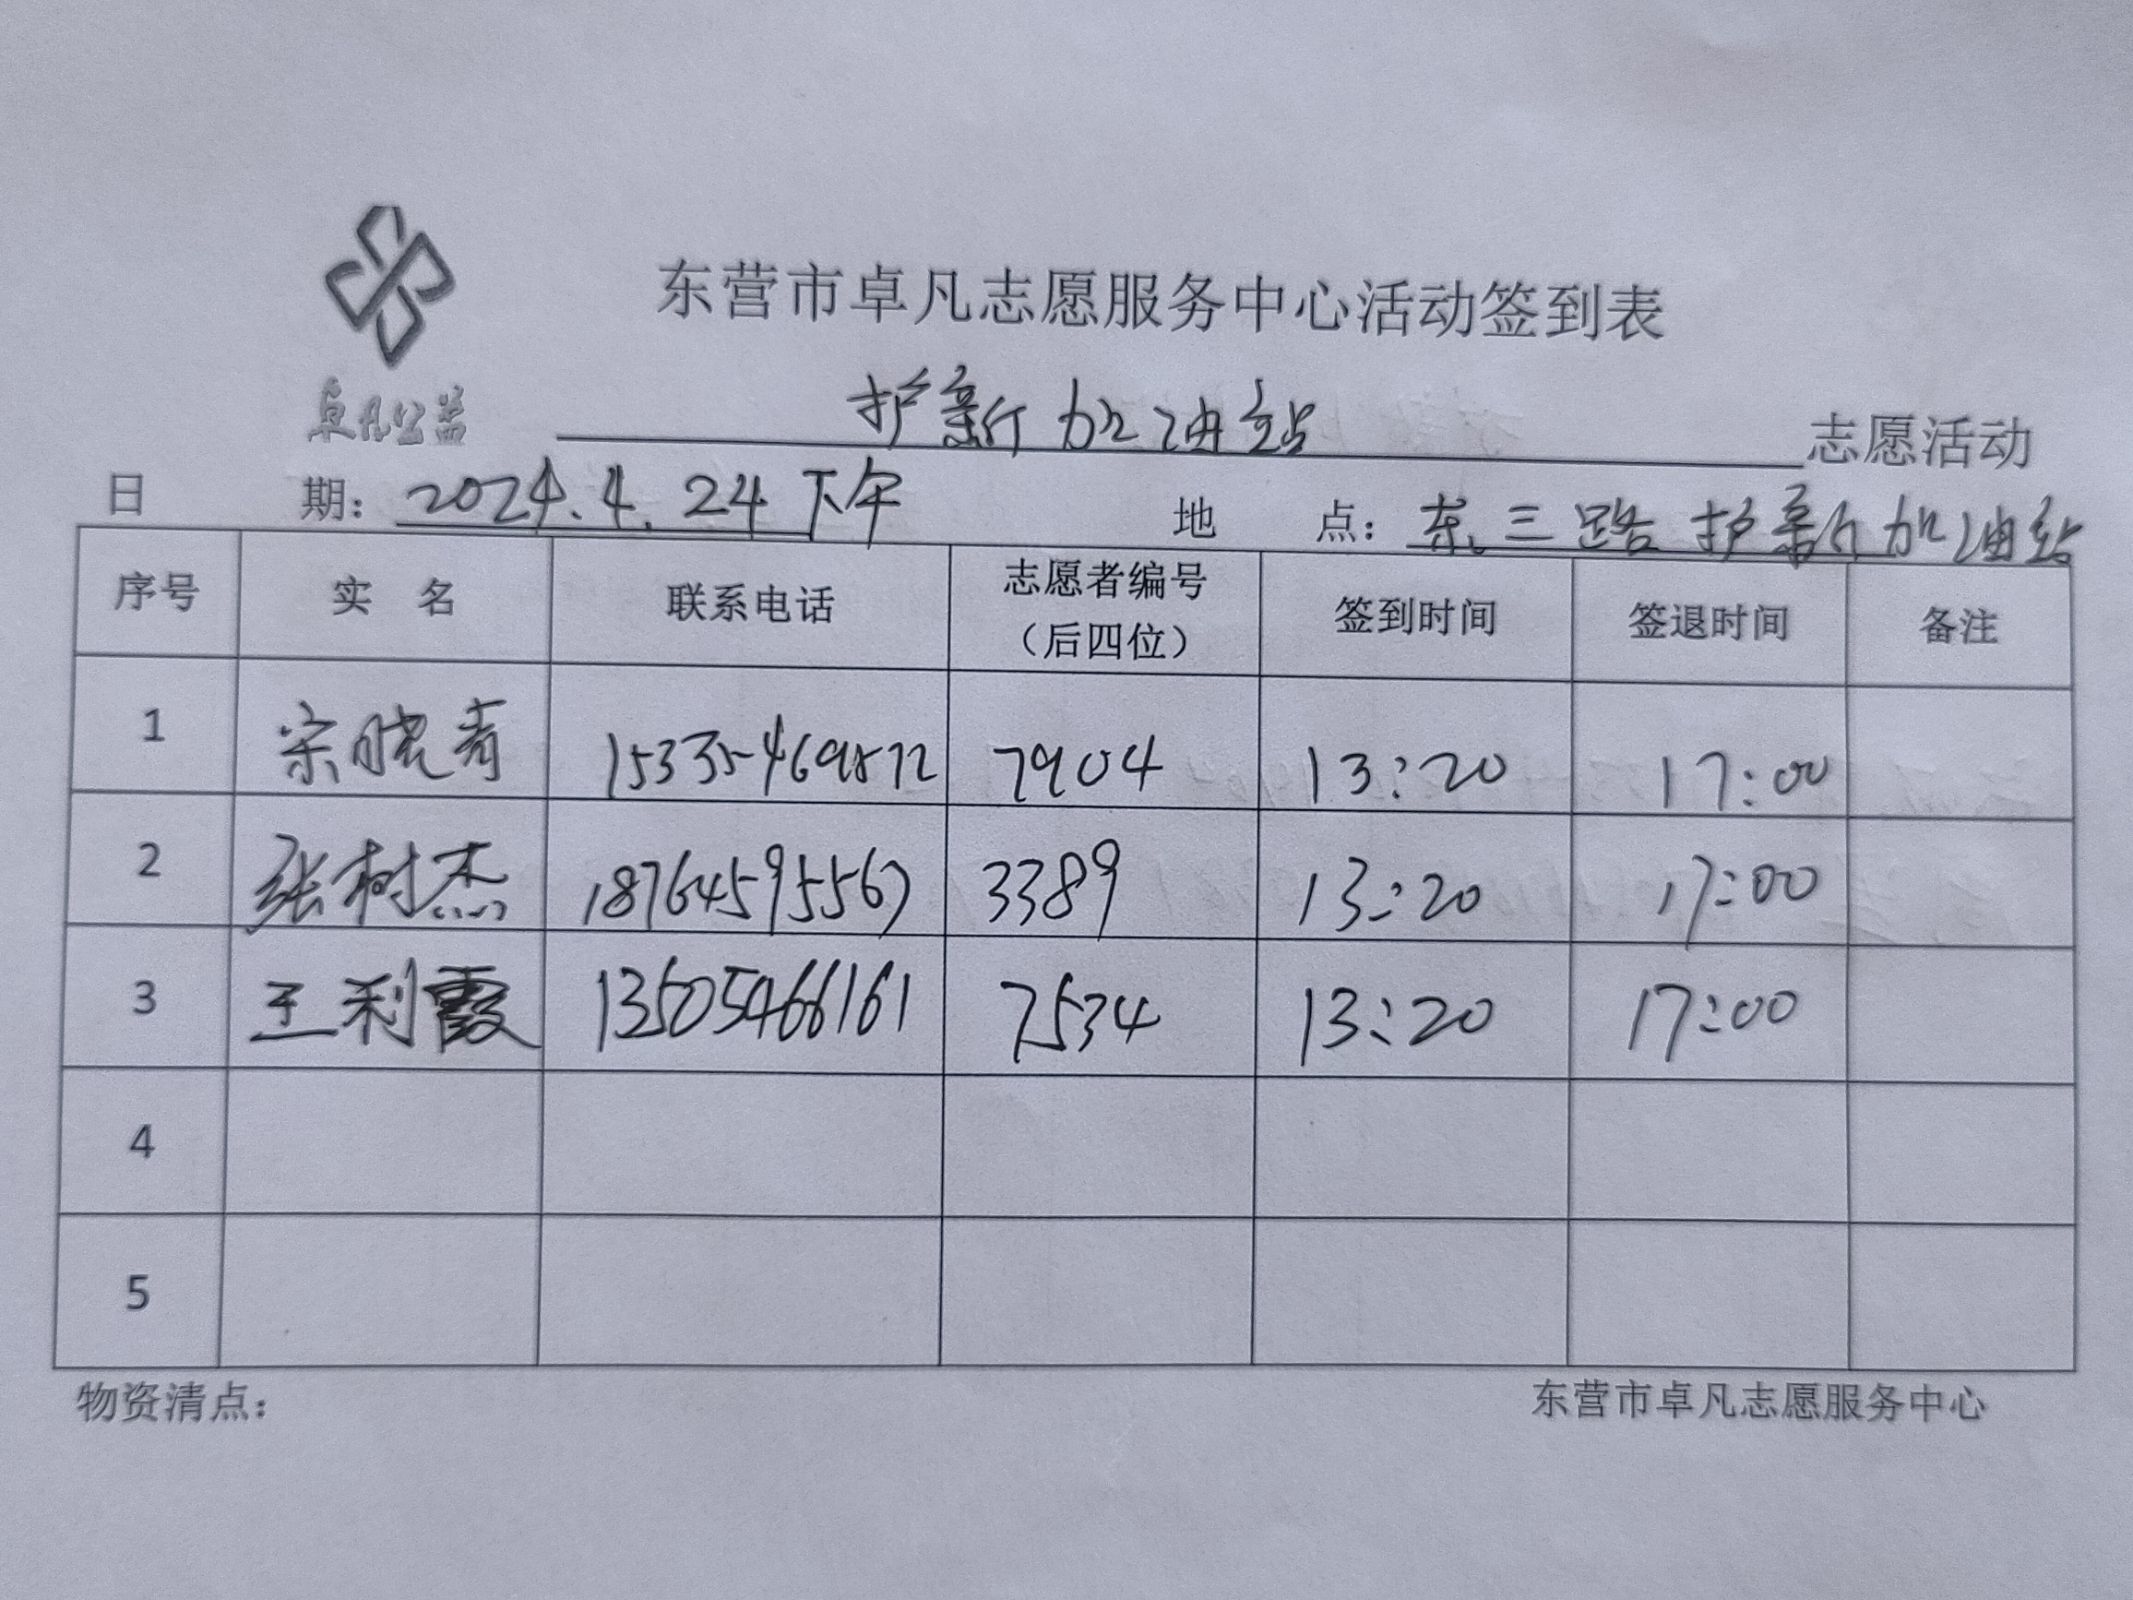 东营市卓凡志愿服务中心活动签到表
卓凡公益
护新加油站 志愿活动
日 期： 2024.4.24下午 地 点： 东三路护新加油站
序号 实 名 联系电话 志愿者编号（后四位） 签到时间 签退时间 备注
1 宋晓青 15335469872 7904 13:20 17:00
2 张树杰 18764595567 3389 13:20 17:00
3 王利霞 13505466161 7534 13:20 17:00
4
5
物资清点： 东营市卓凡志愿服务中心